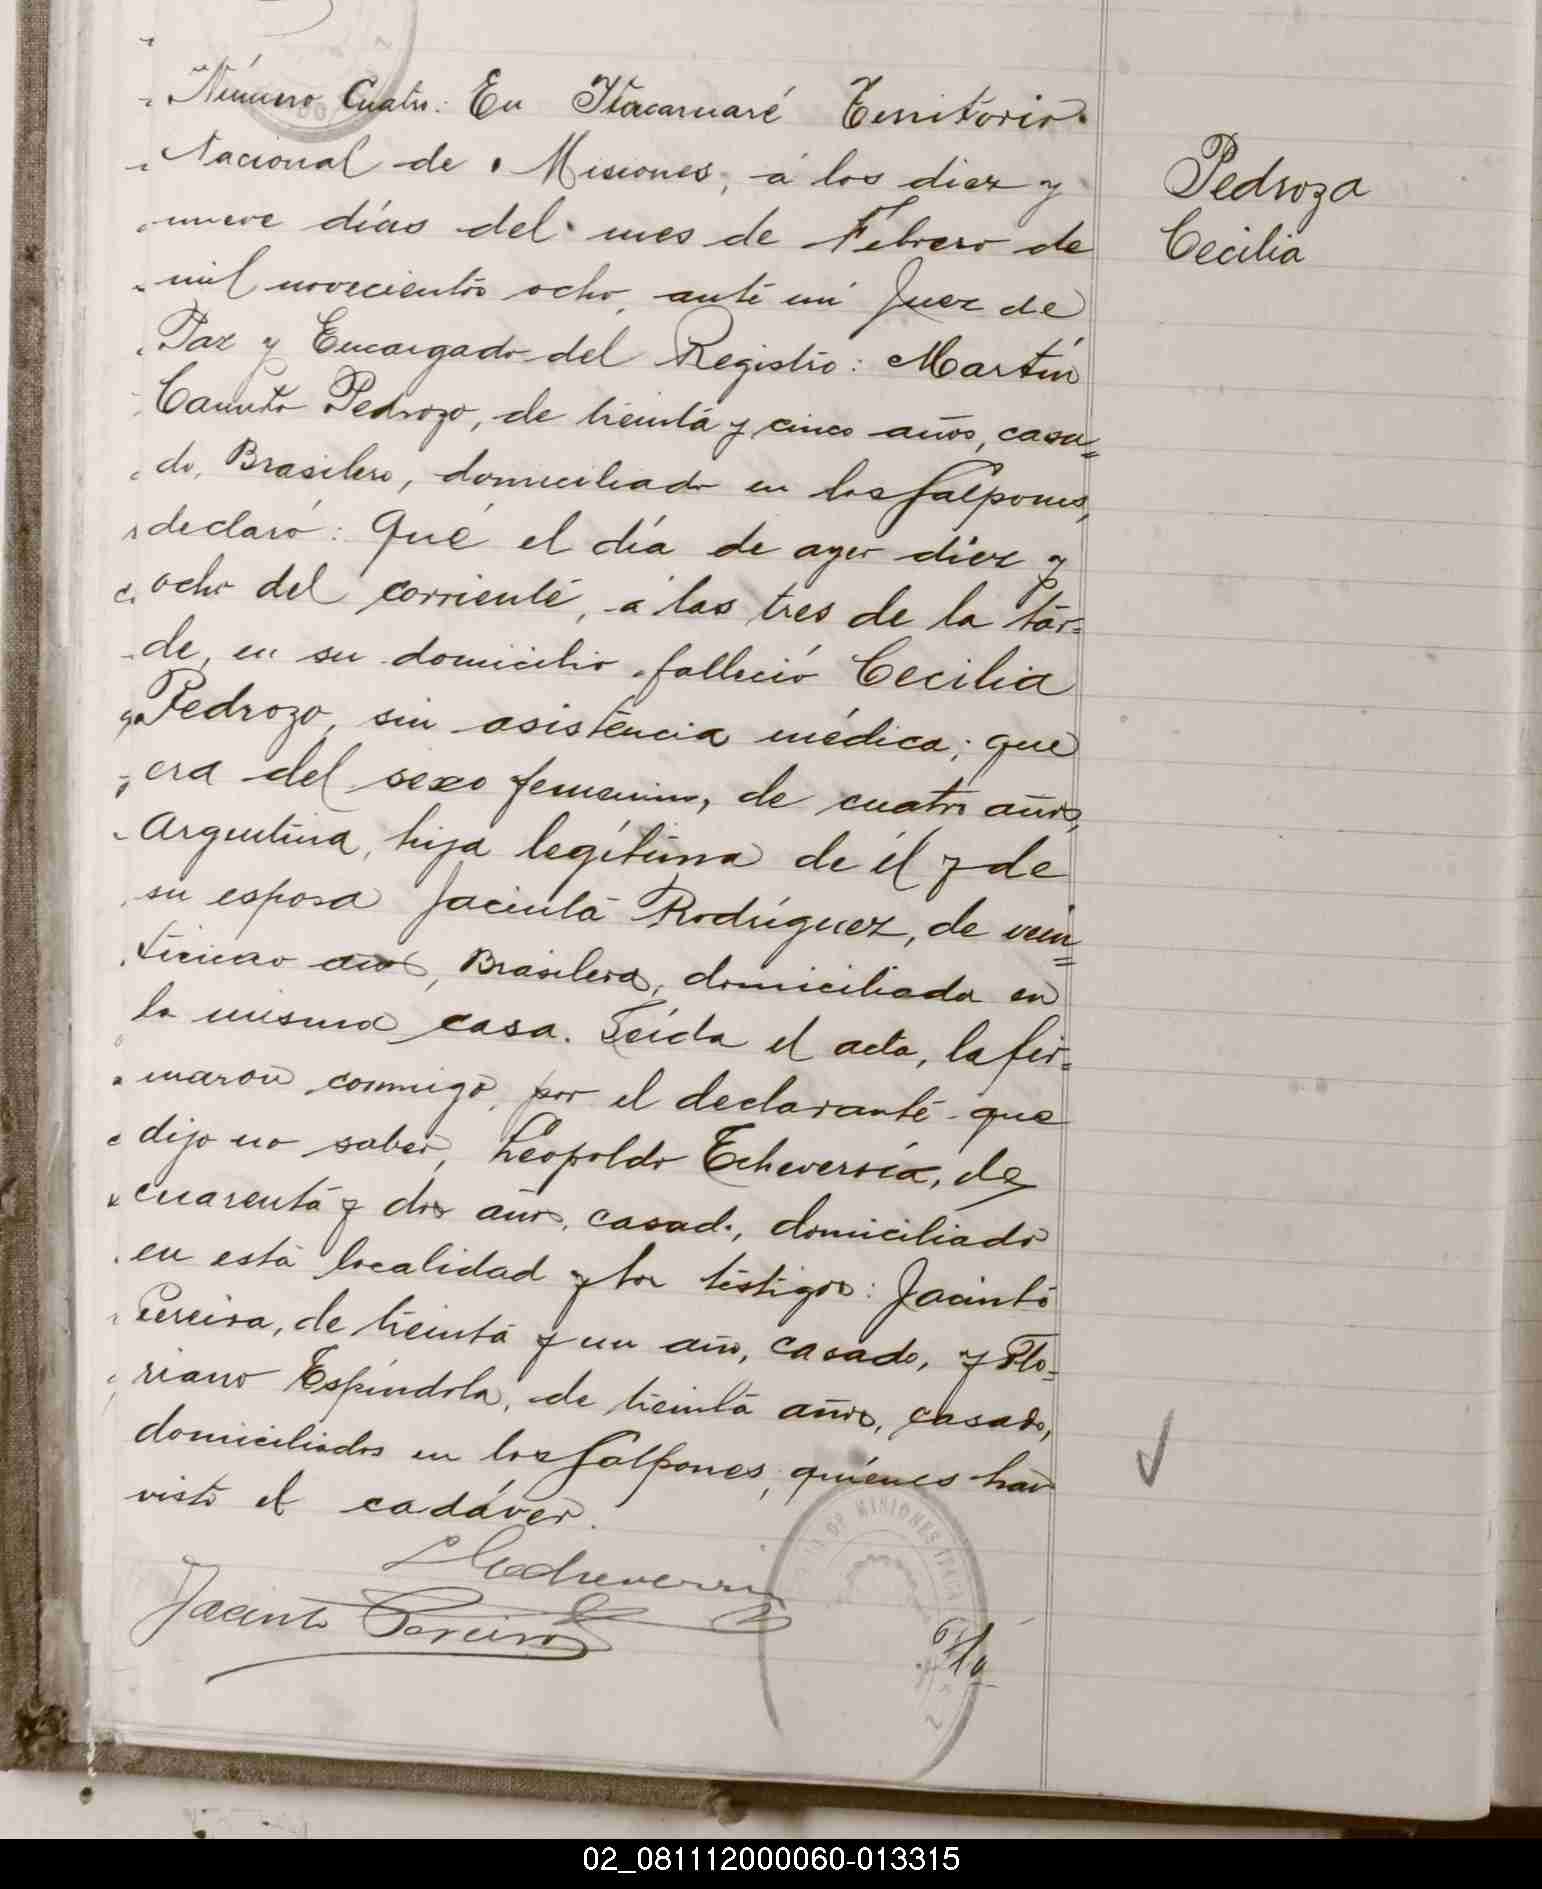 Número Cuatro: En Itacaruaré Territorio
Nacional de Misiones, á los diez y
nueve días del mes de Febrero de
mil novecientos ocho, ante mi Juez de
Paz y Encargado del Registro: Martín
Canuto Pedrozo, de treinta y cinco años, casa=
do, Brasilero, domiciliado en los Galpones,
declaró: Qué el día de ayer diez y
ocho del corriente, á las tres de la tar=
de, en su domicilio falleció Cecilia
Pedrozo, sin asistencia médica; que
era del sexo femenino, de cuatro años,
Argentina, hija legítima de él y de
su esposa Jacinta Rodríguez, de vein=
ticinco años, Brasilera, domiciliada en
la misma casa. Leída el acta, la fir=
maron conmigo, por el declarante que
dijo no saber, Leopoldo Echeverría, de
cuarenta y dos años, casado, domiciliado
en esta localidad y los testigos: Jacinto
Pereira, de treinta y un año, casado, y Flo=
riano Espíndola, de treinta años, casado,
domiciliados en los Galpones, quiénes han
visto el cadáver.
LEcheverría
Jacinto Pereira
Pedroza
Cecilia
DE MISIONES ITACA
02_081112000060-013315